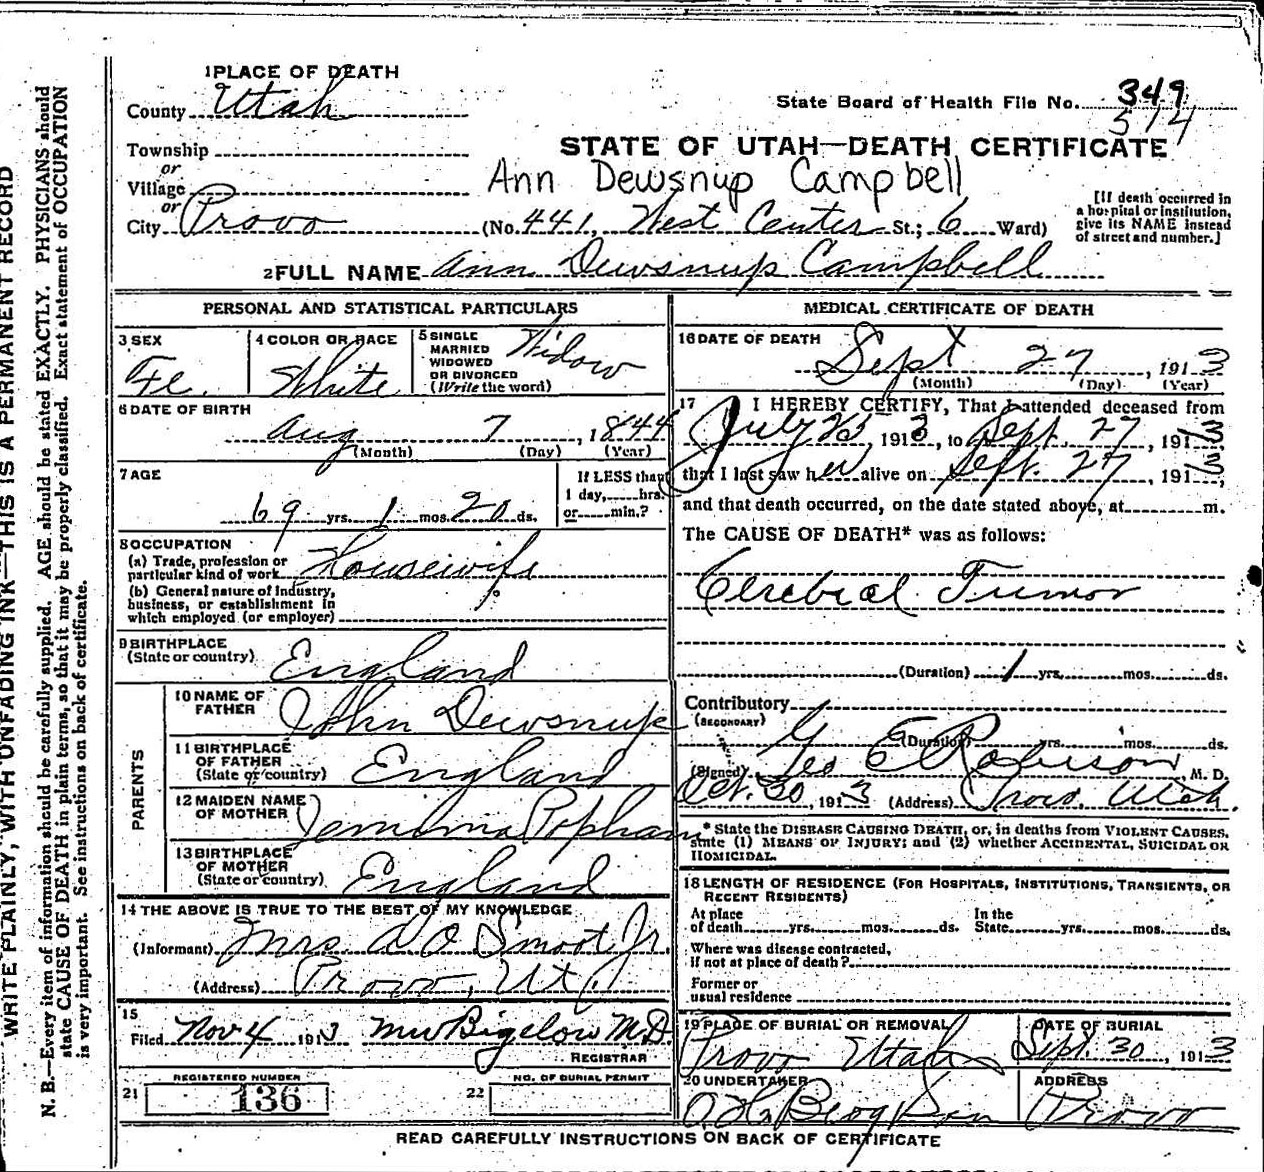 WRITE PLAINLY, WITH UNFADING INK—THIS IS A PERMANENT RECORD
N. B.—Every item of information should be carefully supplied. AGE should be stated EXACTLY. PHYSICIANS should
state CAUSE OF DEATH in plain terms, so that it may be properly classified. Exact statement of OCCUPATION
is very important. See instructions on back of certificate.
1 PLACE OF DEATH
County Utah
State Board of Health File No. 349
514
Township
or
Village
or
STATE OF UTAH—DEATH CERTIFICATE
Ann Dewsnup Campbell
City Provo (No. 441, West Center St.; 6 Ward)
[If death occurred in
a hospital or institution,
give its NAME instead
of street and number.]
2 FULL NAME Ann Dewsnup Campbell
PERSONAL AND STATISTICAL PARTICULARS
3 SEX
Fe.
4 COLOR OR RACE
White
5 SINGLE
MARRIED
WIDOWED
OR DIVORCED
(Write the word)
Widow
6 DATE OF BIRTH
Aug 7, 1844
(Month) (Day) (Year)
7 AGE
69 yrs. 1 mos. 20 ds.
If LESS than
1 day, hrs.
or min.?
8 OCCUPATION
(a) Trade, profession or
particular kind of work Housewife
(b) General nature of Industry,
business, or establishment in
which employed (or employer)
9 BIRTHPLACE
(State or country) England
PARENTS
10 NAME OF
FATHER John Dewsnup
11 BIRTHPLACE
OF FATHER
(State or country) England
12 MAIDEN NAME
OF MOTHER Jemima Popham
13 BIRTHPLACE
OF MOTHER
(State or country) England
14 THE ABOVE IS TRUE TO THE BEST OF MY KNOWLEDGE
(Informant) Mrs A O Smoot Jr.
(Address) Provo, Ut.
15
Filed Nov 4 1913 MW Bigelow M.D.
REGISTRAR
21 REGISTERED NUMBER
136
22 NO. OF BURIAL PERMIT
MEDICAL CERTIFICATE OF DEATH
16 DATE OF DEATH
Sept 27, 1913
(Month) (Day) (Year)
17 I HEREBY CERTIFY, That I attended deceased from
July 23, 1913, to Sept. 27, 1913
that I last saw her alive on Sept. 27, 1913,
and that death occurred, on the date stated above, at m.
The CAUSE OF DEATH* was as follows:
Cerebral Tumor
(Duration) 1 yrs. mos. ds.
Contributory
(SECONDARY)
(Duration) yrs. mos. ds.
(Signed) Geo E Robison, M. D.
Oct. 30, 1913 (Address) Provo, Utah.
* State the DISEASE CAUSING DEATH, or, in deaths from VIOLENT CAUSES,
state (1) MEANS OF INJURY; and (2) whether ACCIDENTAL, SUICIDAL OR
HOMICIDAL.
18 LENGTH OF RESIDENCE (FOR HOSPITALS, INSTITUTIONS, TRANSIENTS, OR
RECENT RESIDENTS)
At place
of death yrs. mos. ds.
In the
State yrs. mos. ds.
Where was disease contracted,
if not at place of death?
Former or
usual residence
19 PLACE OF BURIAL OR REMOVAL
Provo Utah
DATE OF BURIAL
Sept. 30, 1913
20 UNDERTAKER
O. H. Berg & Son
ADDRESS
Provo
READ CAREFULLY INSTRUCTIONS ON BACK OF CERTIFICATE